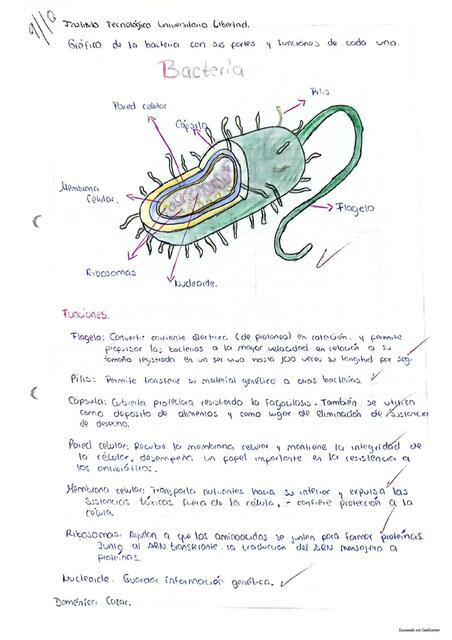 9/10
Instituto Tecnológico Universitario Libertad.
Gráfico de la bacteria con sus partes y funciones de cada uno.
Bacteria
Pilis
Pared celular
Cápsula
Membrana
Celular.
Flagelo
Ribosomas
Nucleoide.
Funciones.
Flagelo: Convertir corriente eléctrica (de protones) en rotación, y permite
propulsar las bacterias a la mayor velocidad en relación a su
tamaño registrada en un ser vivo hasta 100 veces su longitud por seg.
Pilis: Permite transferir su material genético a otras bacterias.
Capsula: Cubierta protectora resistiendo la fagocitosis. También se utilizan
como deposito de alimentos y como lugar de eliminación de sustancias
de desecho.
Pared celular: Recubre la membrana celular y mantiene la integridad de
la célula, desempeña un papel importante en la resistencia a
los antibióticos.
Membrana celular: Transporta nutrientes hacia su interior y expulsa las
sustancias tóxicas fuera de la célula. - confiere protección a la
celula.
Ribosomas: Ayudan a que los aminoacidos se junten para formar proteínas.
Junto al ARN transferente. la traducción del ARN mensajero a
proteínas.
Nucleoide: Guardar información genética.
Doménica Cazar.
Escaneado con CamScanner